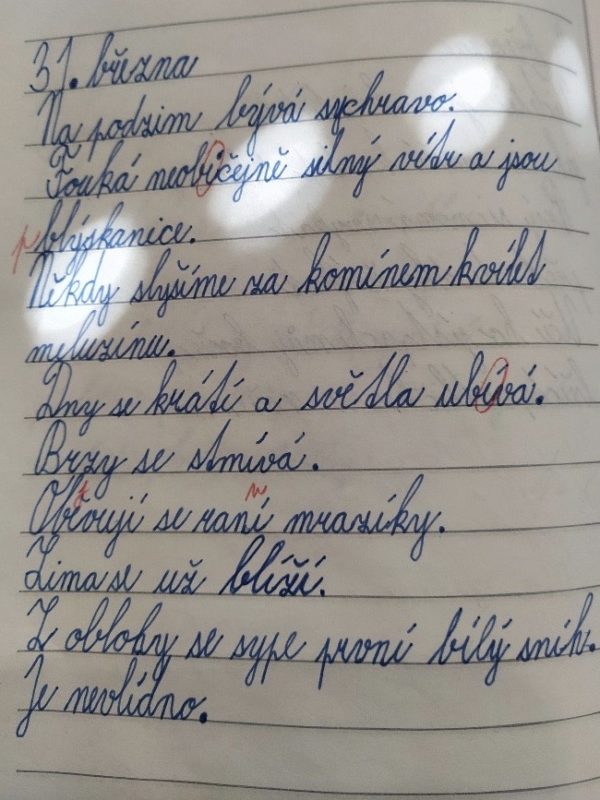 31. března
Na podzim bývá sychravo.
Fouká neobičejně silný vítr a jsou
plískanice.
Někdy slyšíme za komínem kvílet
meluzínu.
Dny se krátí a světla ubívá.
Brzy se stmívá.
Obťovují se raní mrazíky.
Zima se už blíží.
Z oblohy se sype první bílý sníh.
Je nevlídno.